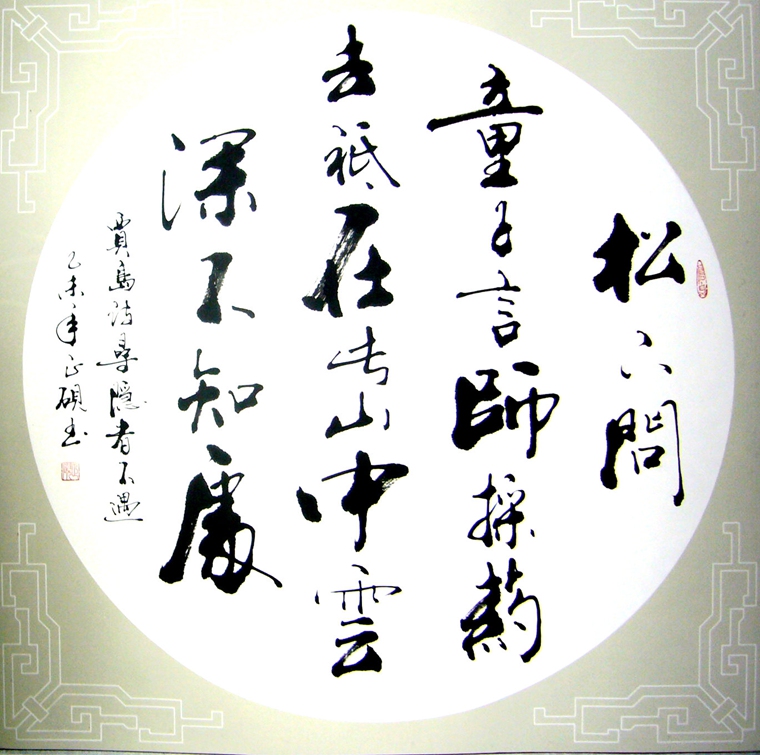 松下問
童子言師採藥
去祗在此山中雲
深不知處
賈島詩尋隱者不遇
乙未年正硯書